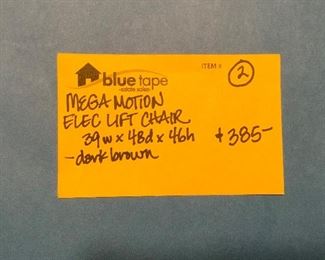 blue tape
estate sales
ITEM #
2
MEGA MOTION
ELEC LIFT CHAIR
39w x 48d x 46h $385-
- dark brown